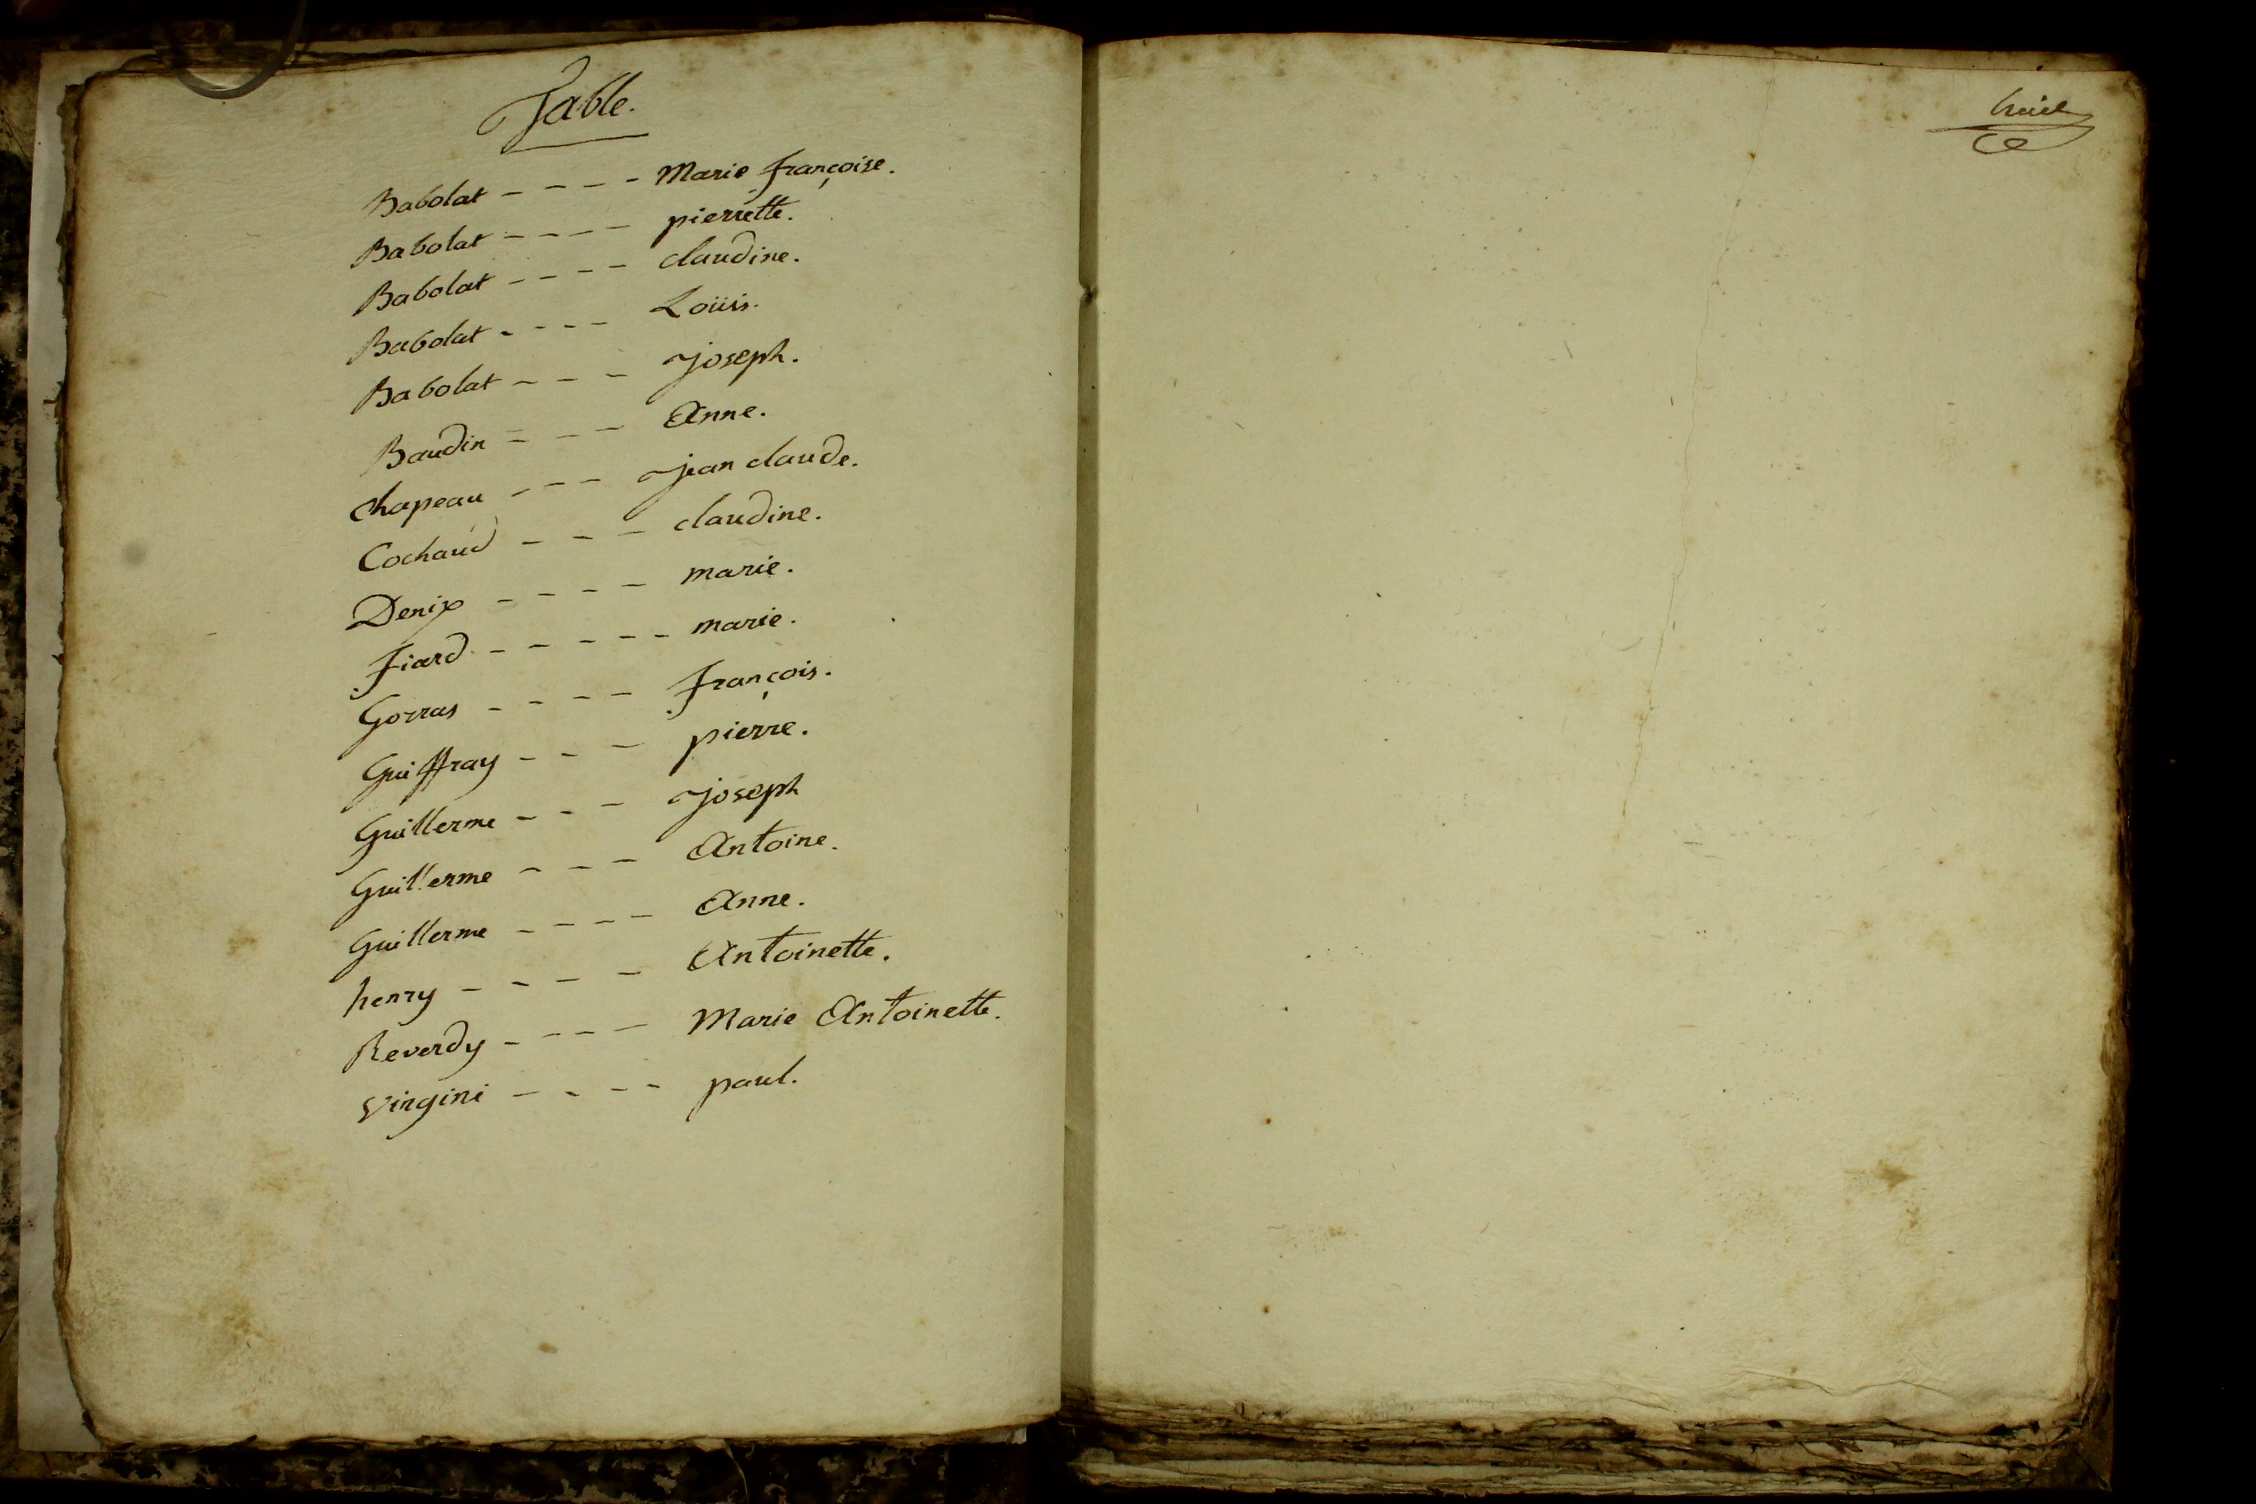 Table.
Babolat - - - - Marie françoise.
Babolat - - - - pierrette.
Babolat - - - - claudine.
Babolat - - - - Loüis.
Babolat - - - Joseph.
Baudin - - - Anne.
Chapeau - - - Jean claude.
Cochaud - - - claudine.
Denix - - - - marie.
fiard - - - - - marie.
Gorras - - - - françois.
Guiffray - - - pierre.
Guillerme - - - Joseph
Guillerme - - - Antoine.
Guillerme - - - - Anne.
henry - - - - Antoinette.
Reverdy - - - - Marie Antoinette.
Virgini - - - - paul.